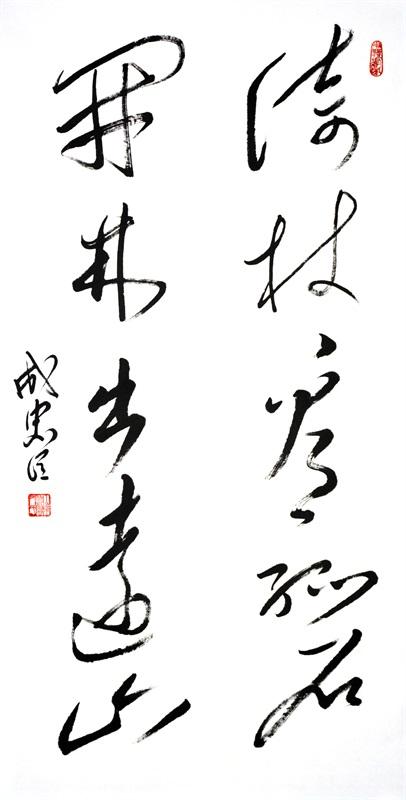 倚杖看孤石
開林出遠山
成忠臣